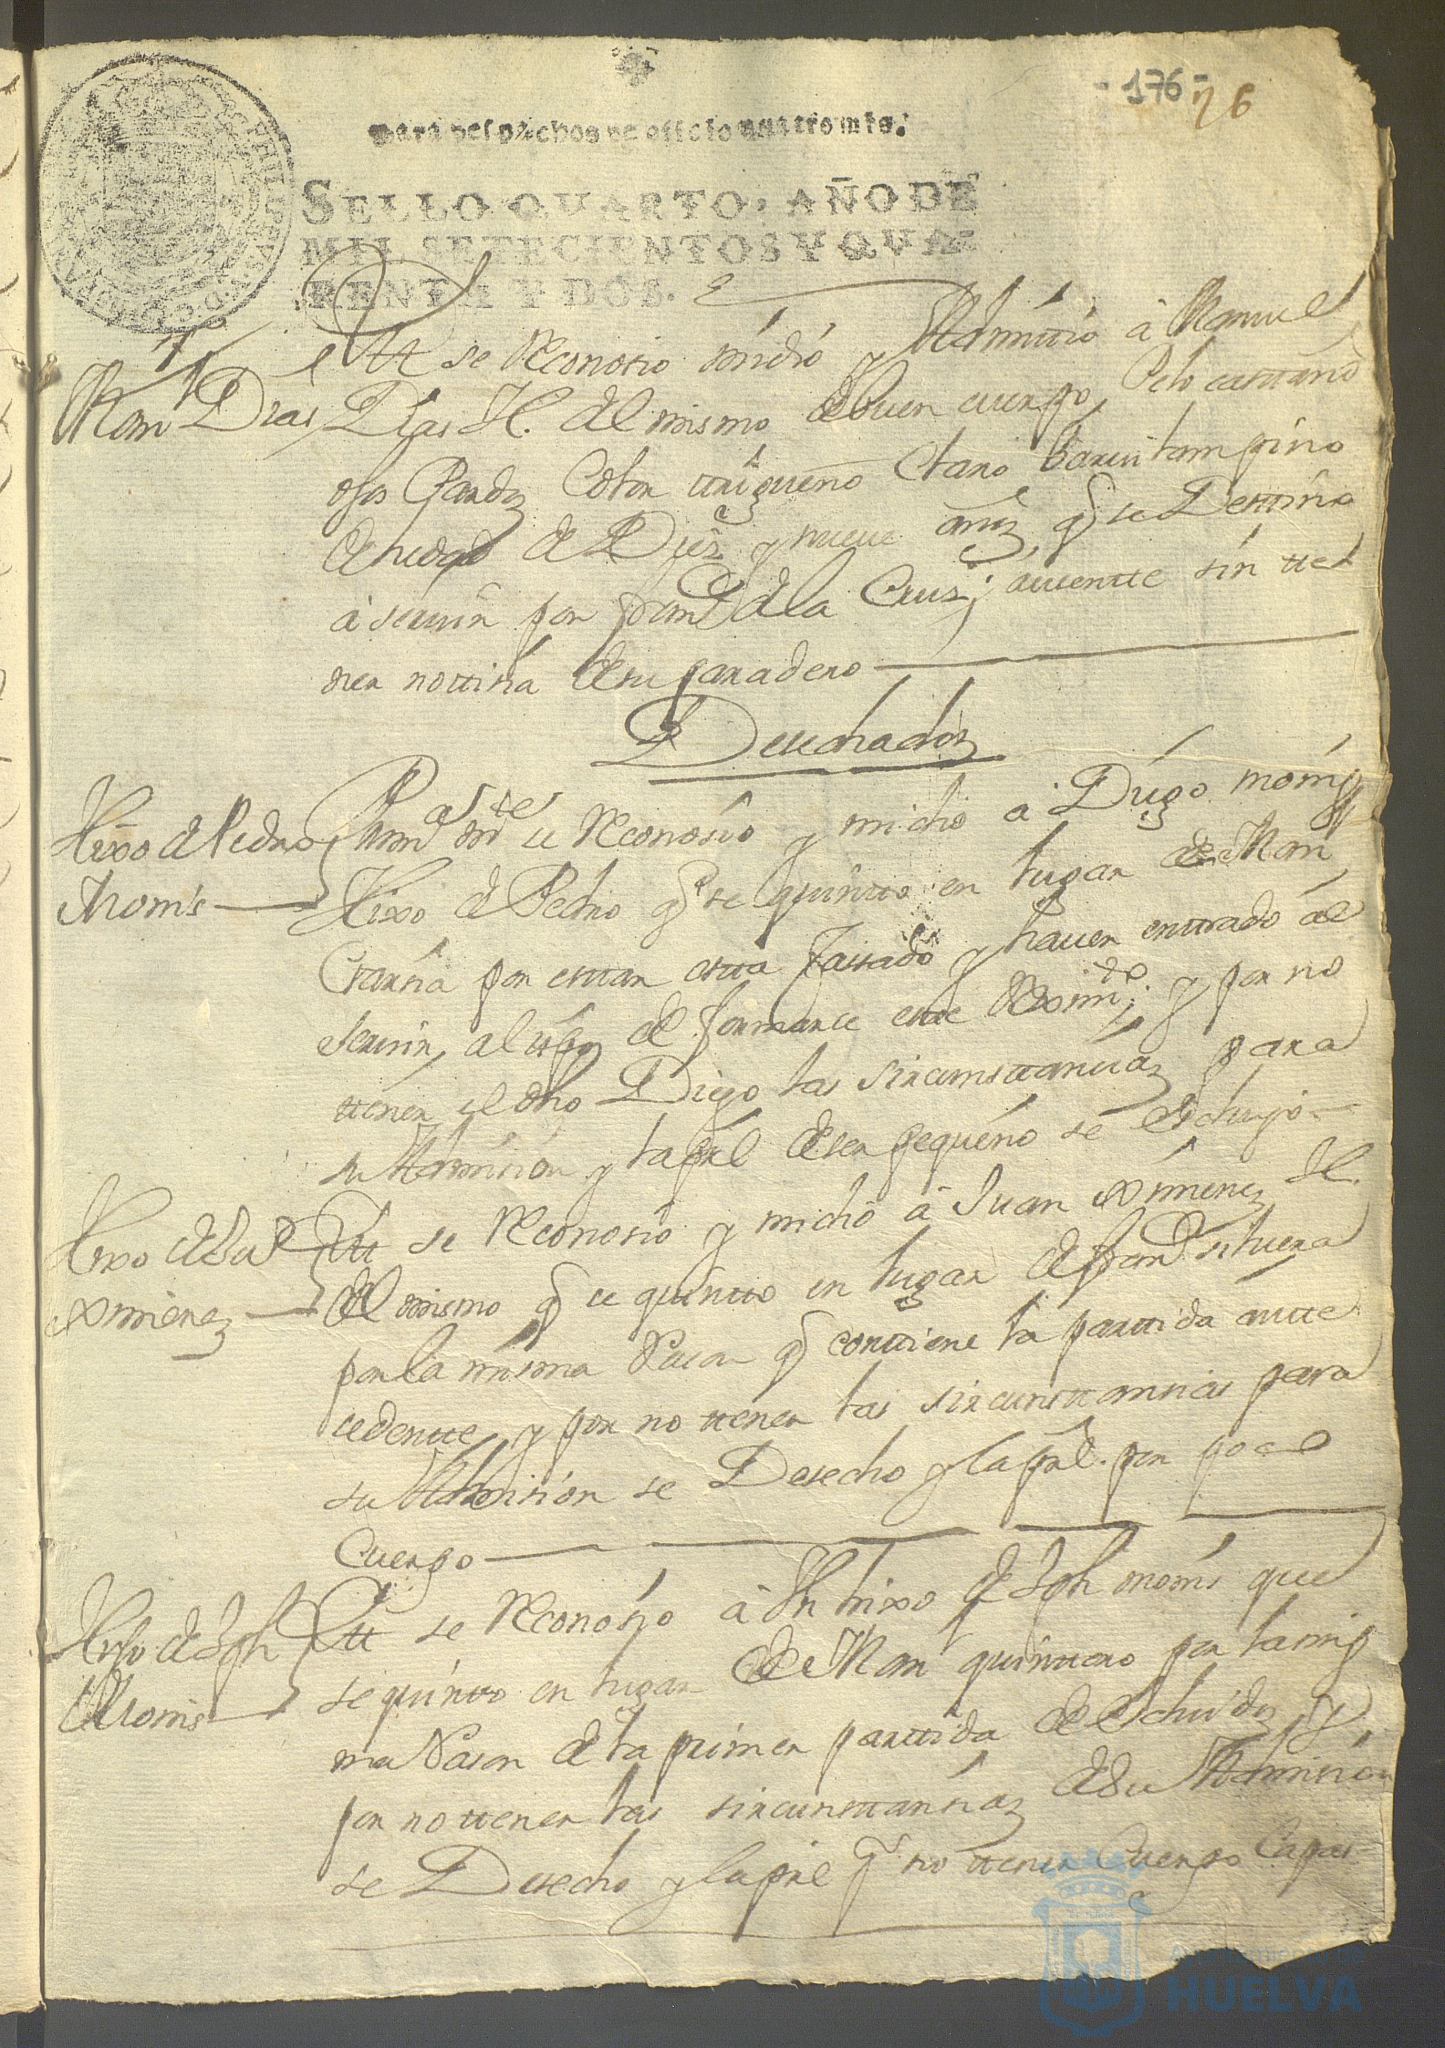 -176-
76
para despachos de oficio quatro mrs.
SELLO QUARTO, AÑO DE
MIL SETECIENTOS Y QUA-
RENTA Y DOS.
Man.l Dias
Itt se Reconosio midio y Admittio â Manuel
Dias H. del mismo de buen cuerpo, Pelo castano
ojos Pardos Color ttrigueño Claro barbilampino
de hedad de Dies y nueve años, q se Desttina
â seruir por fran.co de la Crus, ausentte sin tte
ner nottisia de su paradero
Desechados
Hixo de Pedro
Moms
se Reconosio y midio a Diego moms
Hixo de Pedro q se quintto en lugar de Man
Garsia por esttar estta Cassado y hauer enttrado âl
seruir, al ttpo del formarse estte Reximto; y por no
ttener el dho Diego las sircunsttancias para
su Admision y la pral de ser pequeño se Eschuyo
Hixo de Ju.o
Ximenez
Itt se Reconosio y midio â Juan Ximenez H.
del mismo q se quintto en lugar de fran.co siluera
por la misma Rason q conttiene la parttida antte
cedentte, y por no ttener las sircunsttansias para
su Admision se Desecho y la pral. por poco
Cuerpo
Hixo de Jph
Moms
Itt se Reconosyo â Un hixo de Jph moms que
se quintto en lugar de Man quinttero por la mis
ma Rason de la primer parttida de Eschuidos, y
por no ttener las sircunsttansias de su Admision
se Desecho y la pral q no ttener Cuerpo Capas
Ayuntamiento de
HUELVA